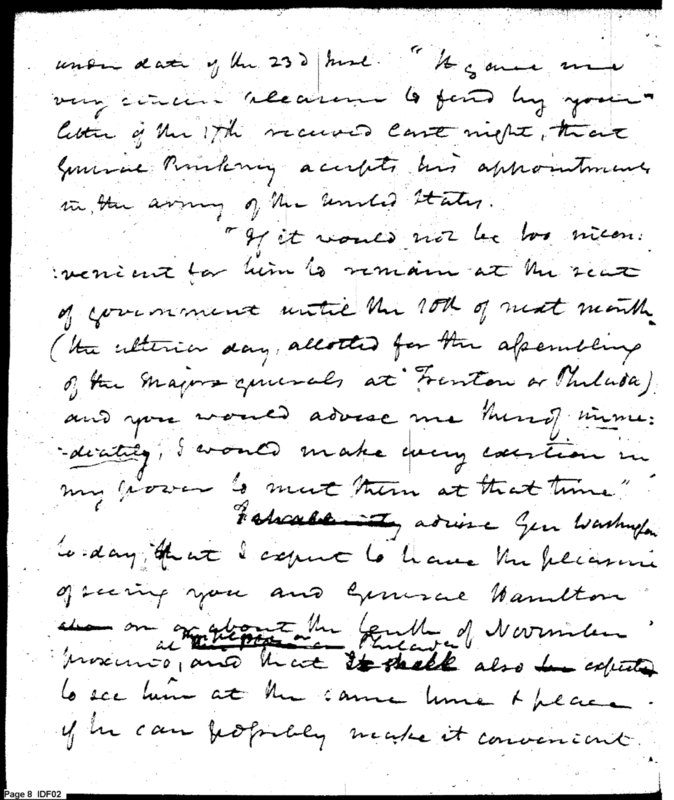 under date of the 23d Inst. "It gave me
very sincere pleasure to find by your
letter of the 17th received last night, that
General Pinckney accepts his appointment
in the army of the United States.
"If it would not be too incon:
:venient for him to remain at the seat
of government until the 10th of next month
(the ulterior day, allotted for the assembling
of the Majors generals at Trenton or Philada)
and you would advise me thereof imme:
:diately, I would make every exertion in
my power to meet them at that time"
I advise Gen Washington
to-day, that I expect to have the pleasure
of seeing you and General Hamilton
on or about the tenth of November
at Philada
proximo, and that I shall also expected
to see him at the same time & place
if he can possibly make it convenient
Page 8 IDF02